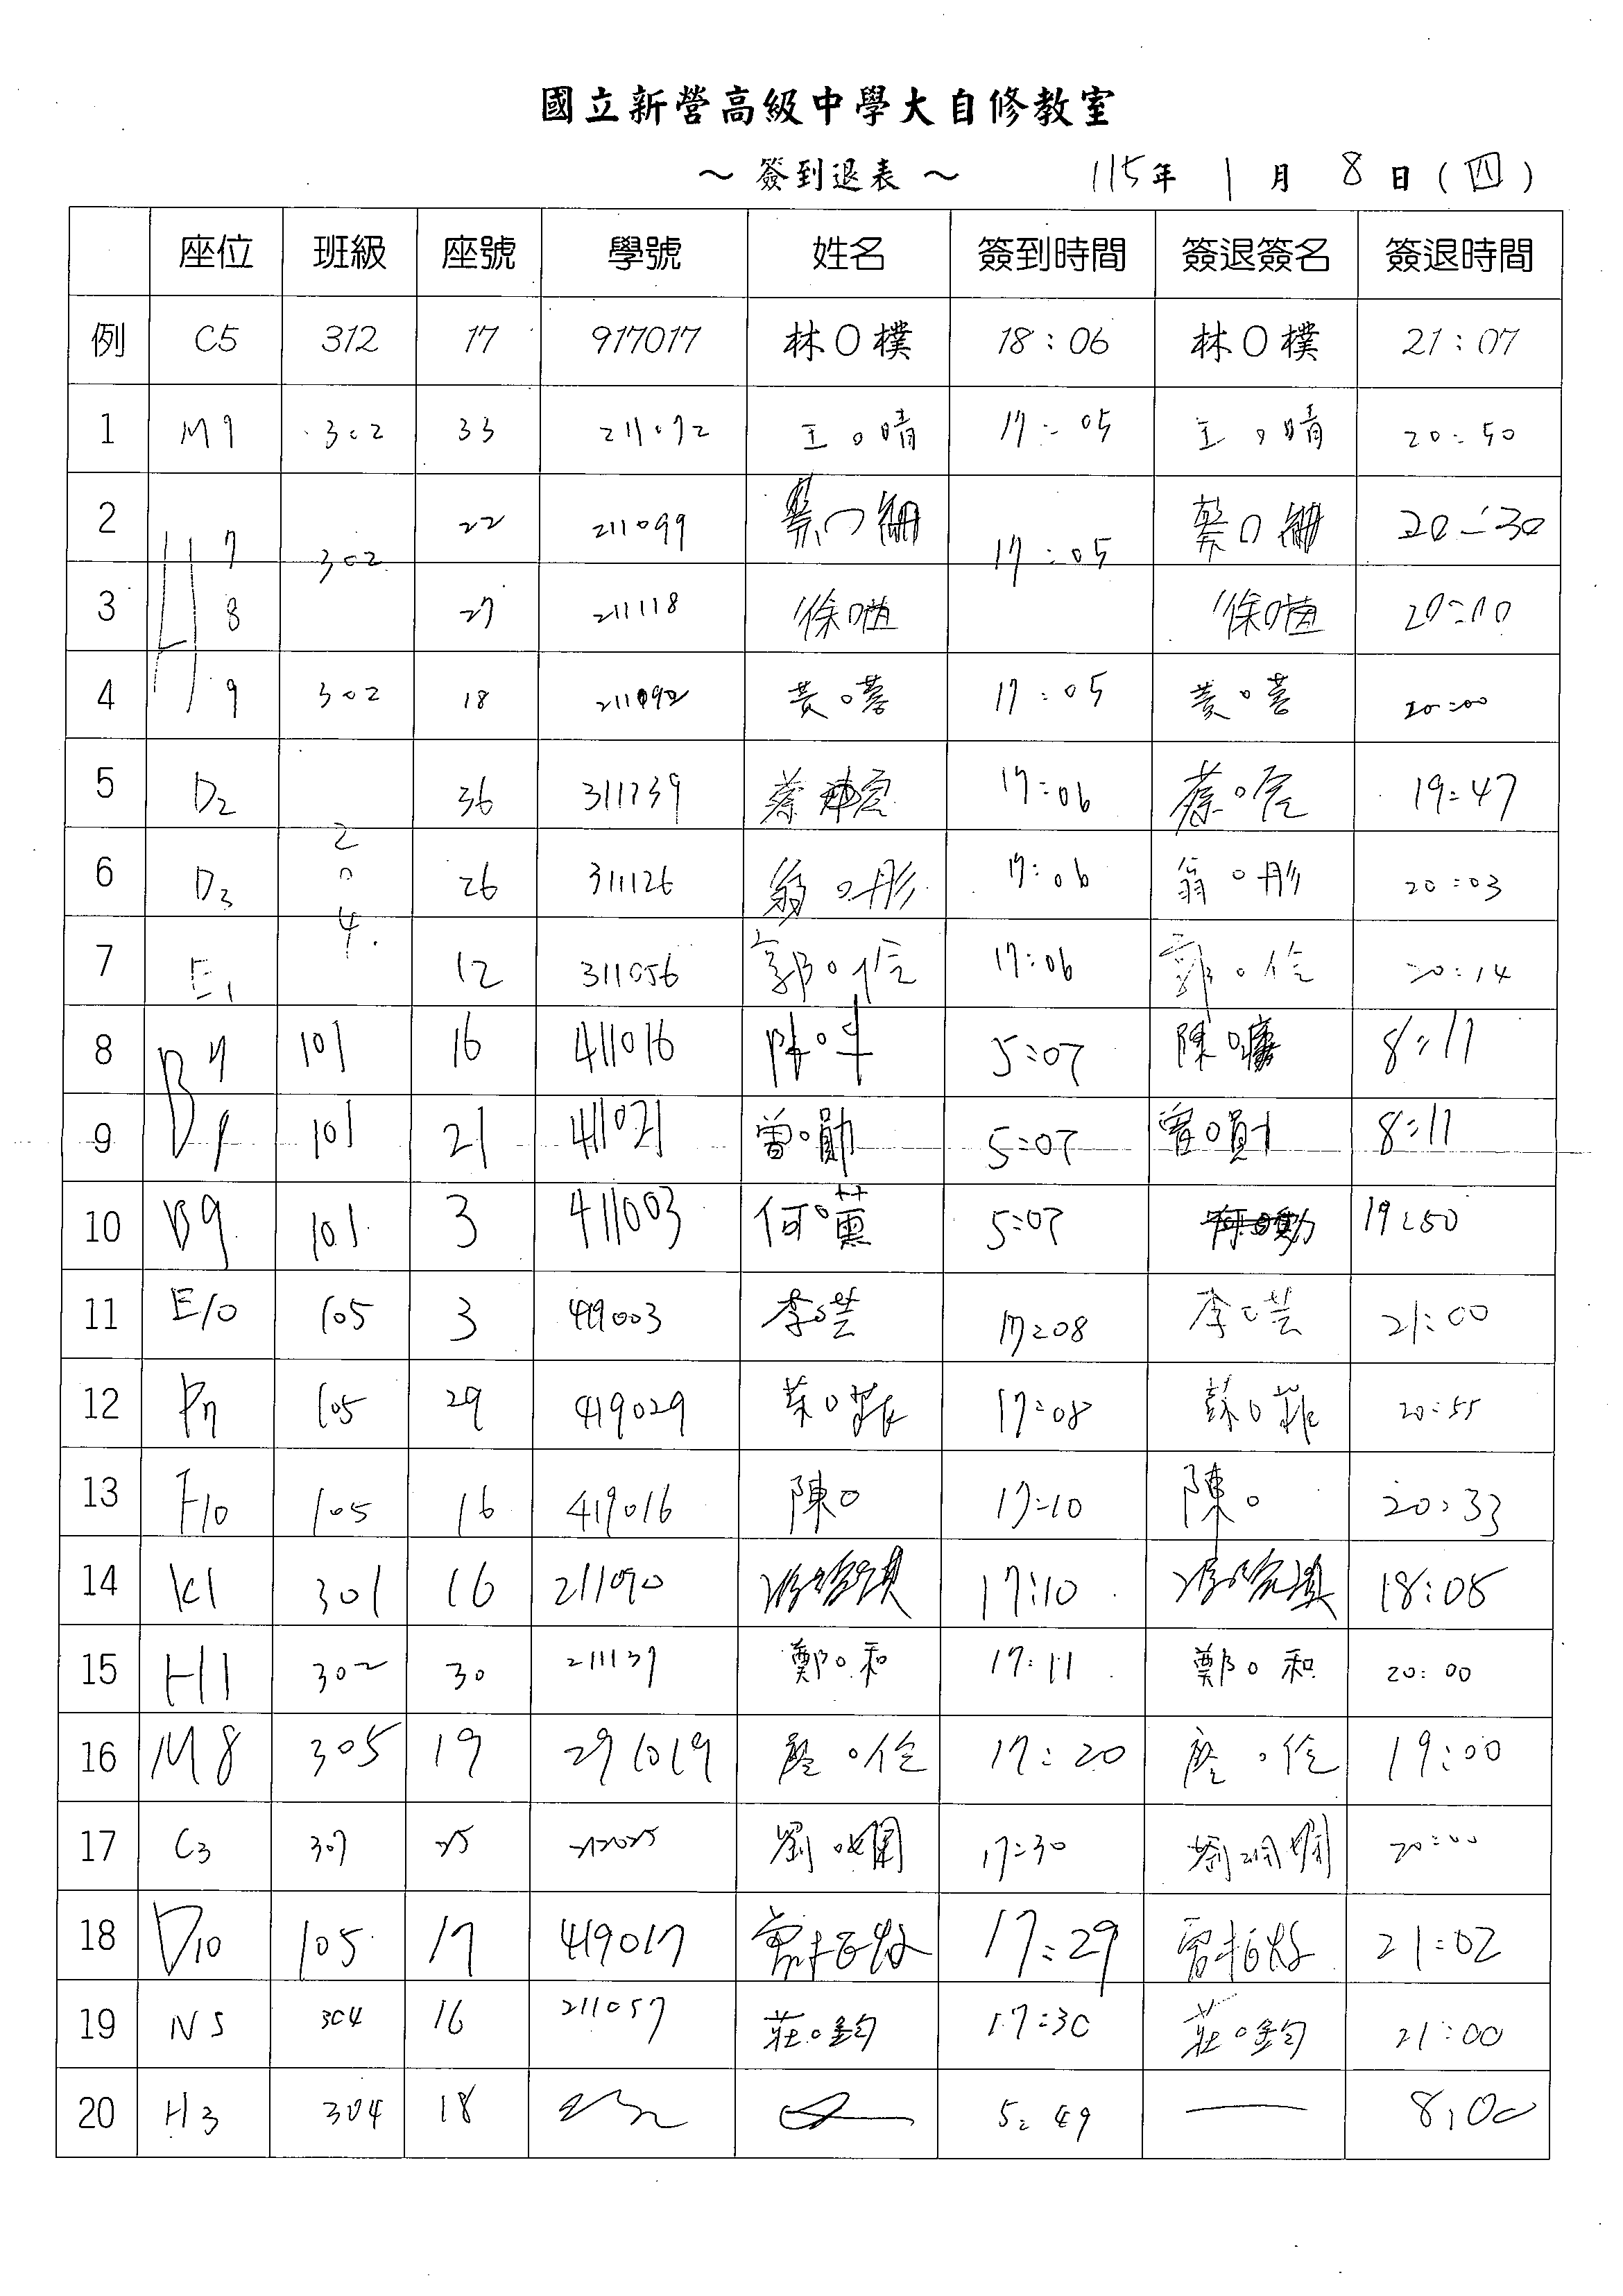 國立新營高級中學大自修教室
～ 簽到退表 ～ 115年 1月 8日(四)
座位 班級 座號 學號 姓名 簽到時間 簽退簽名 簽退時間
例 C5 312 17 917017 林〇樸 18:06 林〇樸 21:07
1 M9 302 33 211072 王〇晴 17:05 王〇晴 20:50
2 H7 302 22 211099 蔡〇 17:05 蔡〇 20:30
3 8 27 211118 徐〇 徐〇 20:10
4 9 302 18 黃〇 17:05 黃〇 20:00
5 D2 204 36 311139 蔡 17:06 蔡〇 19:47
6 D3 26 311126 翁〇彤 17:06 翁〇彤 20:03
7 E1 12 311056 郭〇佺 17:06 郭〇佺 20:14
8 B7 101 16 411016 5:07 陳〇 8:11
9 101 21 411021 曾〇勛 5:07 曾〇 8:11
10 B9 101 3 411003 何〇 5:07 19:50
11 E10 105 3 419003 李〇芸 17:08 李〇芸 21:00
12 105 29 419029 17:08 蘇〇菲 20:55
13 F10 105 16 419016 陳〇 17:10 陳〇 20:33
14 K1 301 16 211090 17:10 18:05
15 H1 302 30 211137 鄭〇和 17:11 鄭〇和 20:00
16 M8 305 19 291019 〇佺 17:20 〇佺 19:00
17 C3 307 25 劉〇 17:30 劉 20:00
18 D10 105 17 419017 17:29 曾 21:02
19 N5 304 16 211057 莊〇鈞 17:30 莊〇鈞 21:00
20 H3 304 18 5:49 8:00